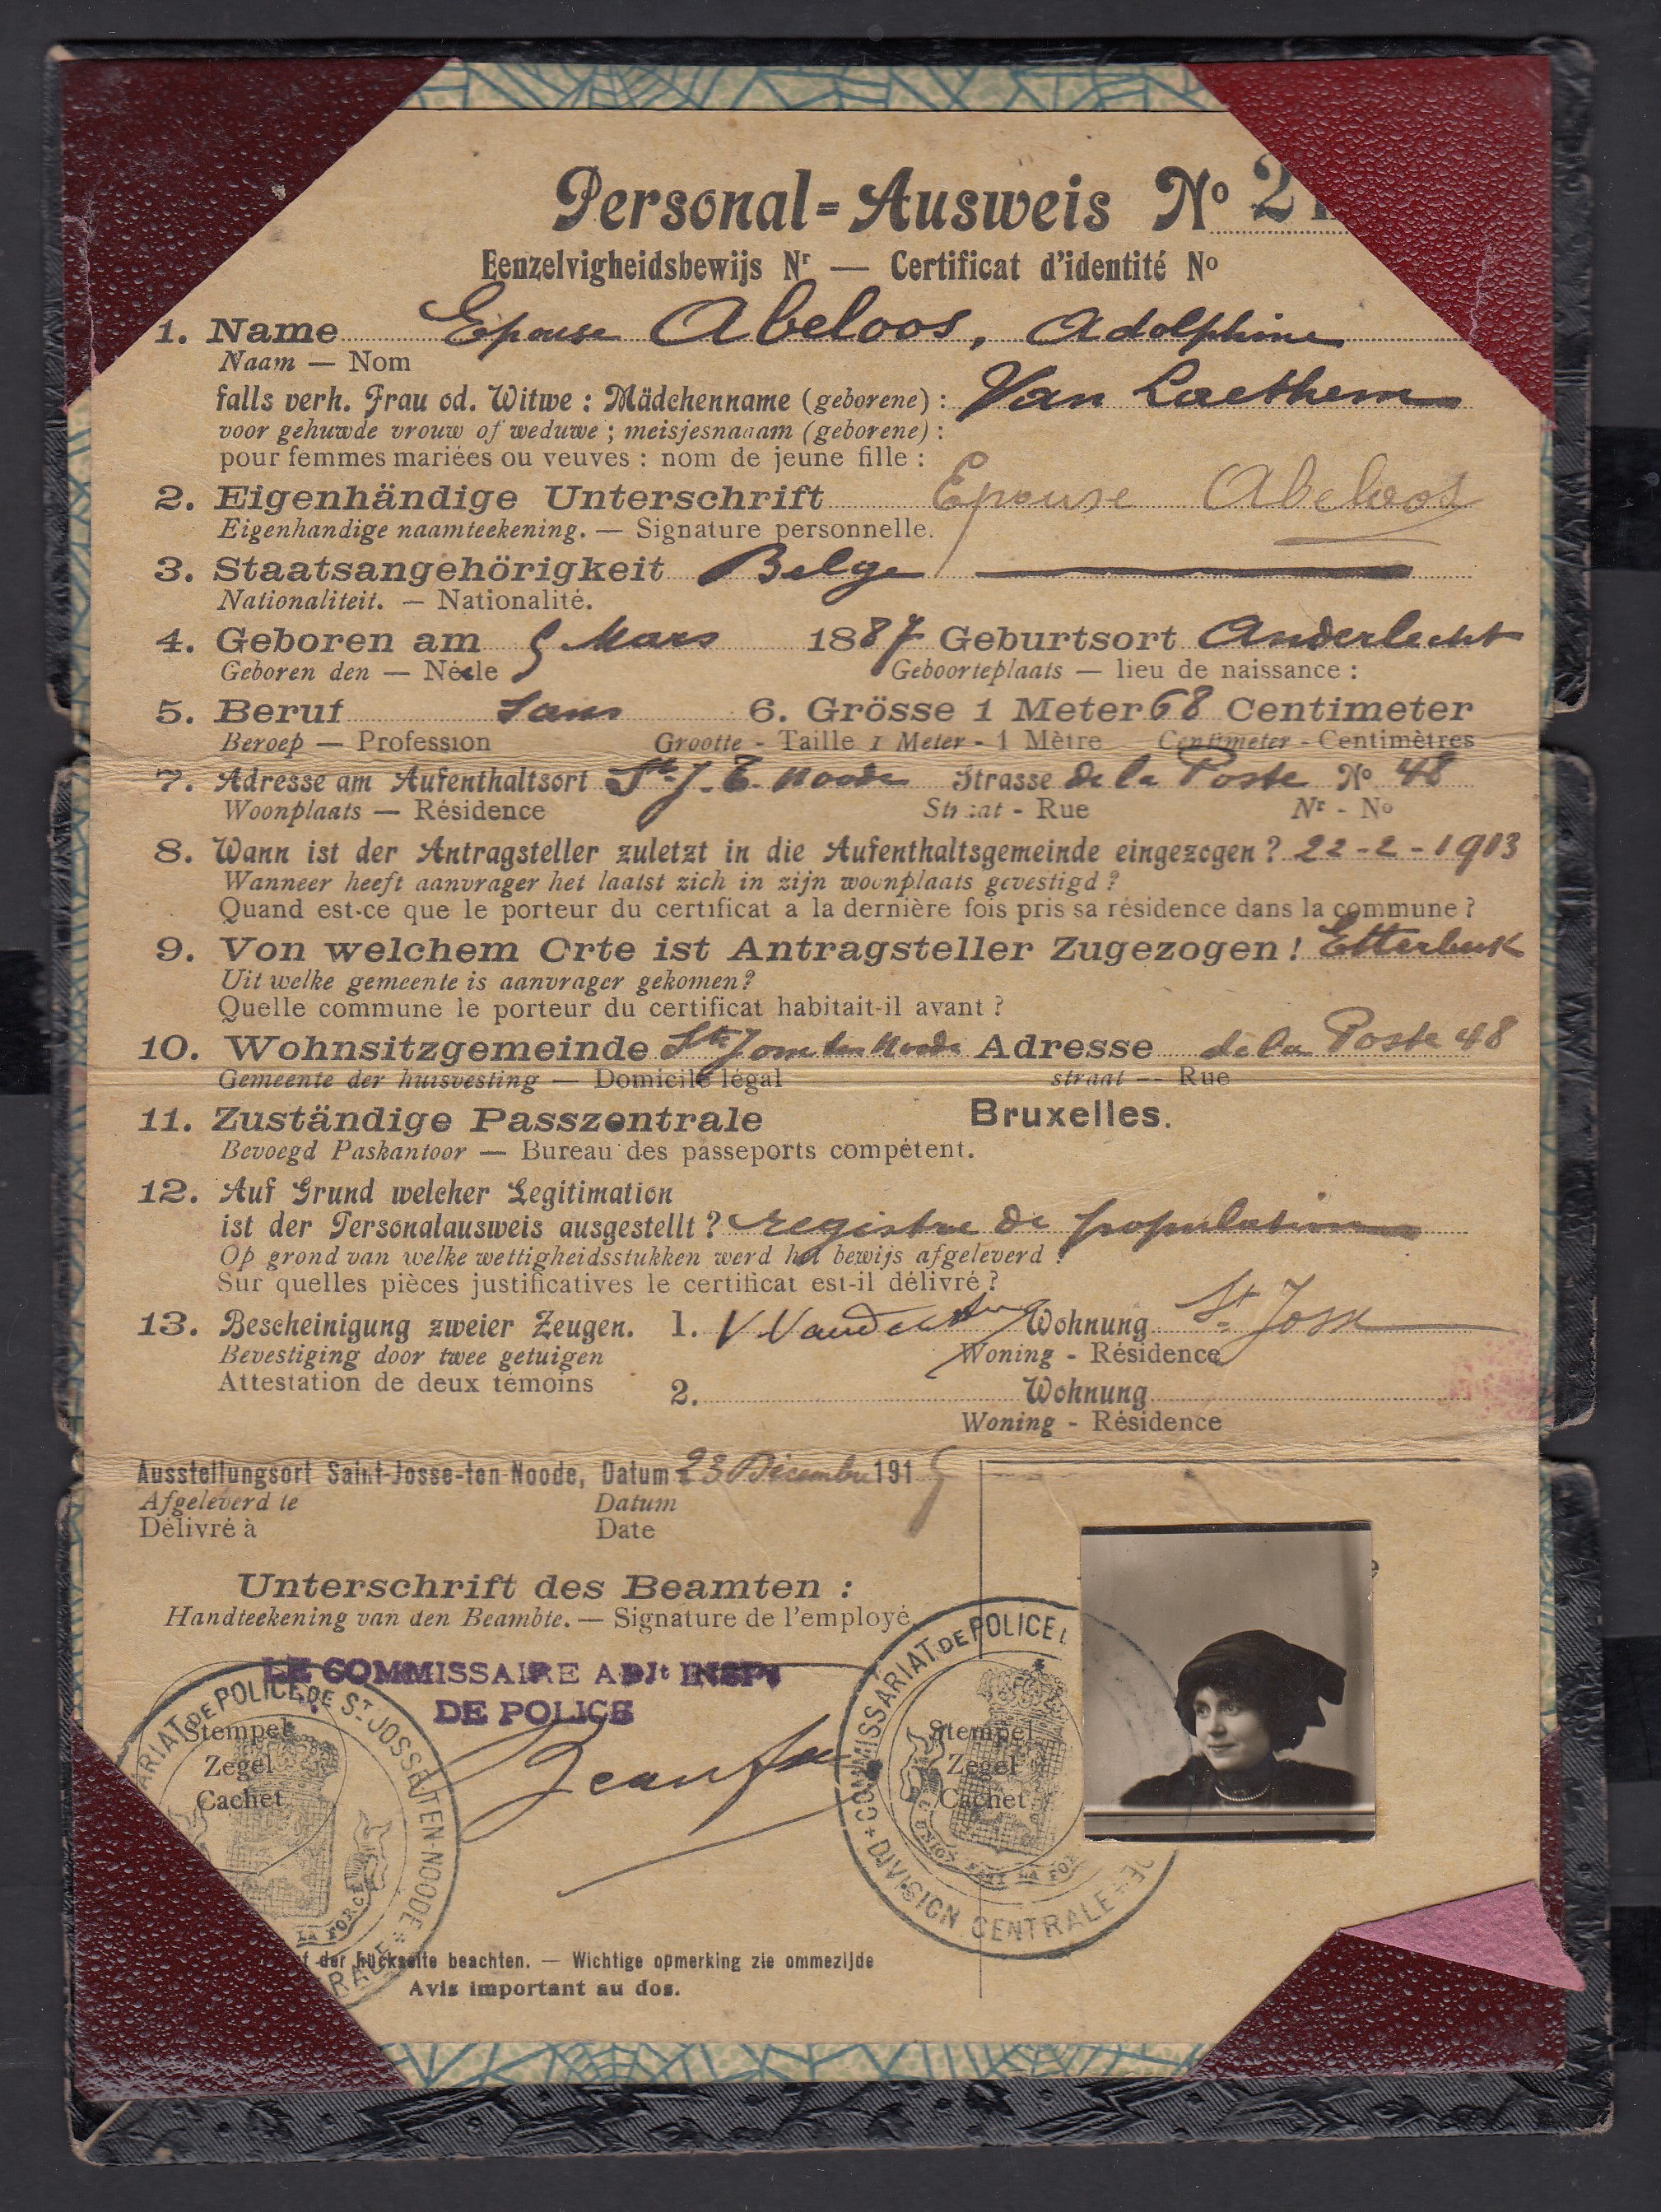 Personal-Ausweis No 2
Eenzelvigheidsbewijs Nr — Certificat d'identité No
1. Name Epouse Abeloos, Adolphine
Naam — Nom
falls verh. Frau od. Witwe : Mädchenname (geborene) : Van Laethem
voor gehuwde vrouw of weduwe ; meisjesnaaam (geborene) :
pour femmes mariées ou veuves : nom de jeune fille :
2. Eigenhändige Unterschrift Epouse Abeloos
Eigenhandige naamteekening. — Signature personnelle.
3. Staatsangehörigkeit Belge
Nationaliteit. — Nationalité.
4. Geboren am 5 Mars 1887 Geburtsort Anderlecht
Geboren den — Né le Geboorteplaats — lieu de naissance :
5. Beruf Sans 6. Grösse 1 Meter 68 Centimeter
Beroep — Profession Grootte - Taille 1 Meter - 1 Mètre Centimeter - Centimètres
7. Adresse am Aufenthaltsort St. J. T. Noode Strasse de la Poste No 48
Woonplaats — Résidence Straat - Rue Nr - No
8. Wann ist der Antragsteller zuletzt in die Aufenthaltsgemeinde eingezogen ? 22-2-1913
Wanneer heeft aanvrager het laatst zich in zijn woonplaats gevestigd ?
Quand est-ce que le porteur du certificat a la dernière fois pris sa résidence dans la commune ?
9. Von welchem Orte ist Antragsteller Zugezogen ! Etterbeek
Uit welke gemeente is aanvrager gekomen?
Quelle commune le porteur du certificat habitait-il avant ?
10. Wohnsitzgemeinde St Josse ten Noode Adresse de la Poste 48
Gemeente der huisvesting — Domicile légal straat -- Rue
11. Zuständige Passzentrale Bruxelles.
Bevoegd Paskantoor — Bureau des passeports compétent.
12. Auf Grund welcher Legitimation
ist der Personalausweis ausgestellt ? registre de population
Op grond van welke wettigheidsstukken werd het bewijs afgeleverd ?
Sur quelles pièces justificatives le certificat est-il délivré ?
13. Bescheinigung zweier Zeugen. 1. Wohnung St. Josse
Bevestiging door twee getuigen Woning - Résidence
Attestation de deux témoins 2. Wohnung
Woning - Résidence
Ausstellungsort Saint-Josse-ten-Noode, Datum 23 Décembre 1915
Afgeleverd te Datum
Délivré à Date
Unterschrift des Beamten :
Handteekening van den Beambte. — Signature de l'employé
LE COMMISSAIRE ADJt INSPr
DE POLICE
COMMISSARIAT DE POLICE
DIVISION CENTRALE
ARIAT DE POLICE DE ST JOSSE-TEN-NOODE
Stempel
Zegel
Cachet
Stempel
Zegel
Cachet
LA FORCE
der Rückseite beachten. — Wichtige opmerking zie ommezijde
Avis important au dos.